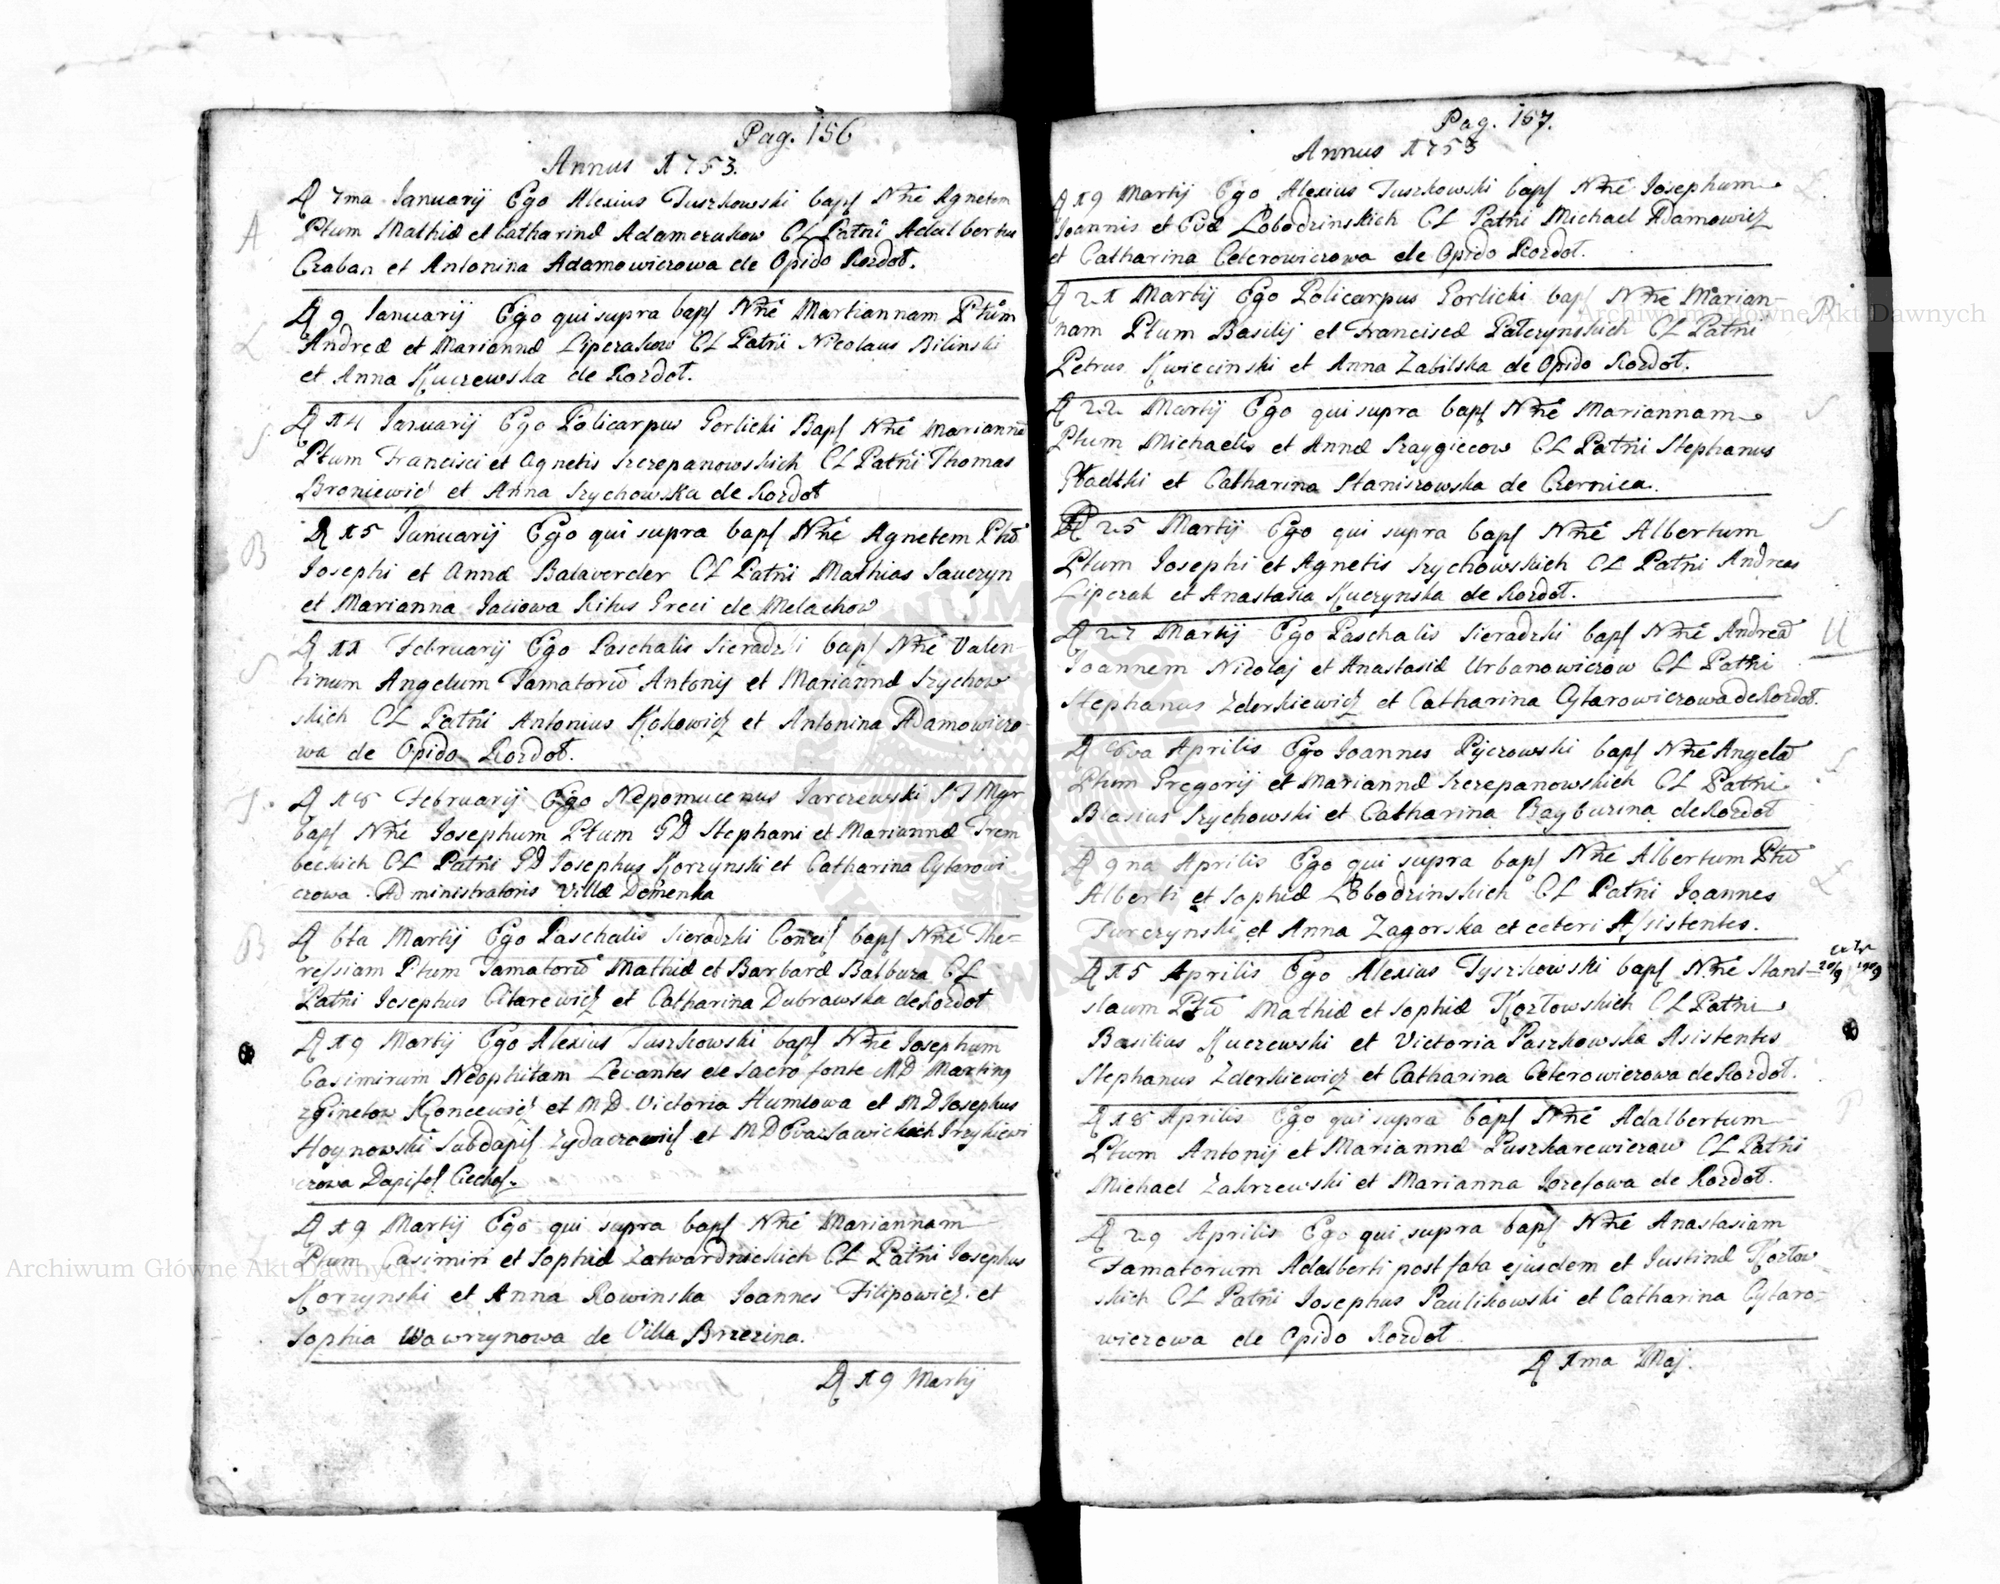 Pag. 156
Annus 1753.
D 7ma Januarij Ego Alexius Tuszkowski bapſ Nñe Agnetem
Ptum Mathiæ et Catharinæ Adamczukow CL Patñi Adalbertus
Czaban et Antonina Adamowiczowa de Opido Rozdoł.
D 9 Januarij Ego qui supra bapſ Nñe Martiannam Ptum
Andreæ et Mariannæ Liperakow CL Patñi Nicolaus Bilinski
et Anna Kuczewska de Rozdoł.
D 14 Januarij Ego Policarpus Gorlicki Bapſ Nñe Mariannã
Ptum Francisci et Agnetis Szczepanowskich CL Patñi Thomas
Broniewić et Anna Szychowska de Rozdoł
D 15 Januarij Ego qui supra bapſ Nñe Agnetem Ptũ
Josephi et Annæ Balaverder CL Patñi Mathias Sauczyn
et Marianna Jaciowa Ritus Greci de Melachow
D 11 Februarij Ego Paschalis Sieradzki bapſ Nñe Valen
tinum Angelum Famatorũ Antonij et Mariannæ Szychow
skich CL Patñi Antonius Kokowicz et Antonina Adamowiczo
wa de Opido Rozdoł.
D 18 Februarij Ego Nepomucenus Jarczewski S T Mgr
bapſ Nñe Josephum Ptum GD Stephani et Mariannæ Trem
beckich CL Patñi GD Josephus Korzynski et Catharina Cytarowi
czowa Administratoris Villæ Demenka
D 6ta Martij Ego Paschalis Sieradzki Conciſ bapſ Nñe The=
resiam Ptum Famatorũ Mathiæ et Barbaræ Balbuza CL
Patñi Josephus Citarewicz et Catharina Dubrawska de Rozdoł
D 19 Martij Ego Alexius Tuszkowski bapſ Nñe Josephum
Casimirum Neophitam Levantes de Sacro fonte MD Martinq
Koncewić et MD Victoria Humłowa et MD Josephus
Hoynowski Subdapiſ et MD Eva
czowa Dapifeſ Ciechoſ.
D 19 Martij Ego qui supra bapſ Nñe Mariannam
Ptum Casimiri et Sophiæ Zatwardnickich CL Patñi Josephus
Korzynski et Anna Rowinska Joannes Filipowicz et
Sophia Wawrzynowa de Villa Brzezina.
D 19 Martij
Pag. 157.
Annus 1753
D 19 Martij Ego Alexius Tuszkowski bapſ Nñe Josephum
Joannis et Evæ Łobodzinskich CL Patñi Michael Adamowicz
et Catharina Ceterowiczowa de Opido Rozdoł.
D 21 Martij Ego Policarpus Gorlicki bapſ Nñe Marian-
nam Ptum Basilij et Franciscæ Patczynskich CL Patñi
Petrus Kwiecinski et Anna Zabilska de Opido Rozdoł.
D 22 Martij Ego qui supra bapſ Nñe Mariannam
Ptum Michaelis et Annæ Szaygiecow CL Patñi Stephanus
Gładzki et Catharina Staniszowska de Czernica.
D 25 Martij Ego qui supra bapſ Nñe Albertum
Ptum Josephi et Agnetis Szychowskich CL Patñi Andreas
Liperak et Anastasia Kuczynska de Rozdoł.
D 27 Martij Ego Paschalis Sieradzki bapſ Nñe Andreã
Joannem Nicolaj et Anastasiæ Urbanowiczow CL Patñi
Stephanus Zderkiewicz et Catharina Cytarowiczowa de Rozdoł.
D 8va Aprilis Ego Joannes Pijczowski bapſ Nñe Angelã
Ptum Gregorij et Mariannæ Szczepanowskich CL Patñi
Blasius Szychowski et Catharina Bayburina de Rozdoł
D 9na Aprilis Ego qui supra bapſ Nñe Albertum Ptũ
Alberti et Sophiæ Łobodzinskich CL Patñi Joannes
Turczynski et Anna Zagorska et ceteri Assistentes.
D 15 Aprilis Ego Alexius Tyszkowski bapſ Nñe Stani-
slaum Ptũ Mathiæ et Sophiæ Kozłowskich CL Patñi
Basilius Kuczewski et Victoria Paszkowska Asistentes
Stephanus Zderkiewicz et Catharina Ceterowiczowa de Rozdoł.
D 18 Aprilis Ego qui supra bapſ Nñe Adalbertum
Ptum Antonij et Mariannæ Puszkarewiczow CL Patñi
Michael Zakrzewski et Marianna Jozefowa de Rozdoł.
D 29 Aprilis Ego qui supra bapſ Nñe Anastasiam
Famatorum Adalberti post fata ejusdem et Justinæ Kozłow
skich CL Patñi Josephus Paulikowski et Catharina Cytaro-
wiczowa de Opido Rozdoł.
D 1ma Maj.
Archiwum Główne Akt Dawnych
Archiwum Główne Akt Dawnych